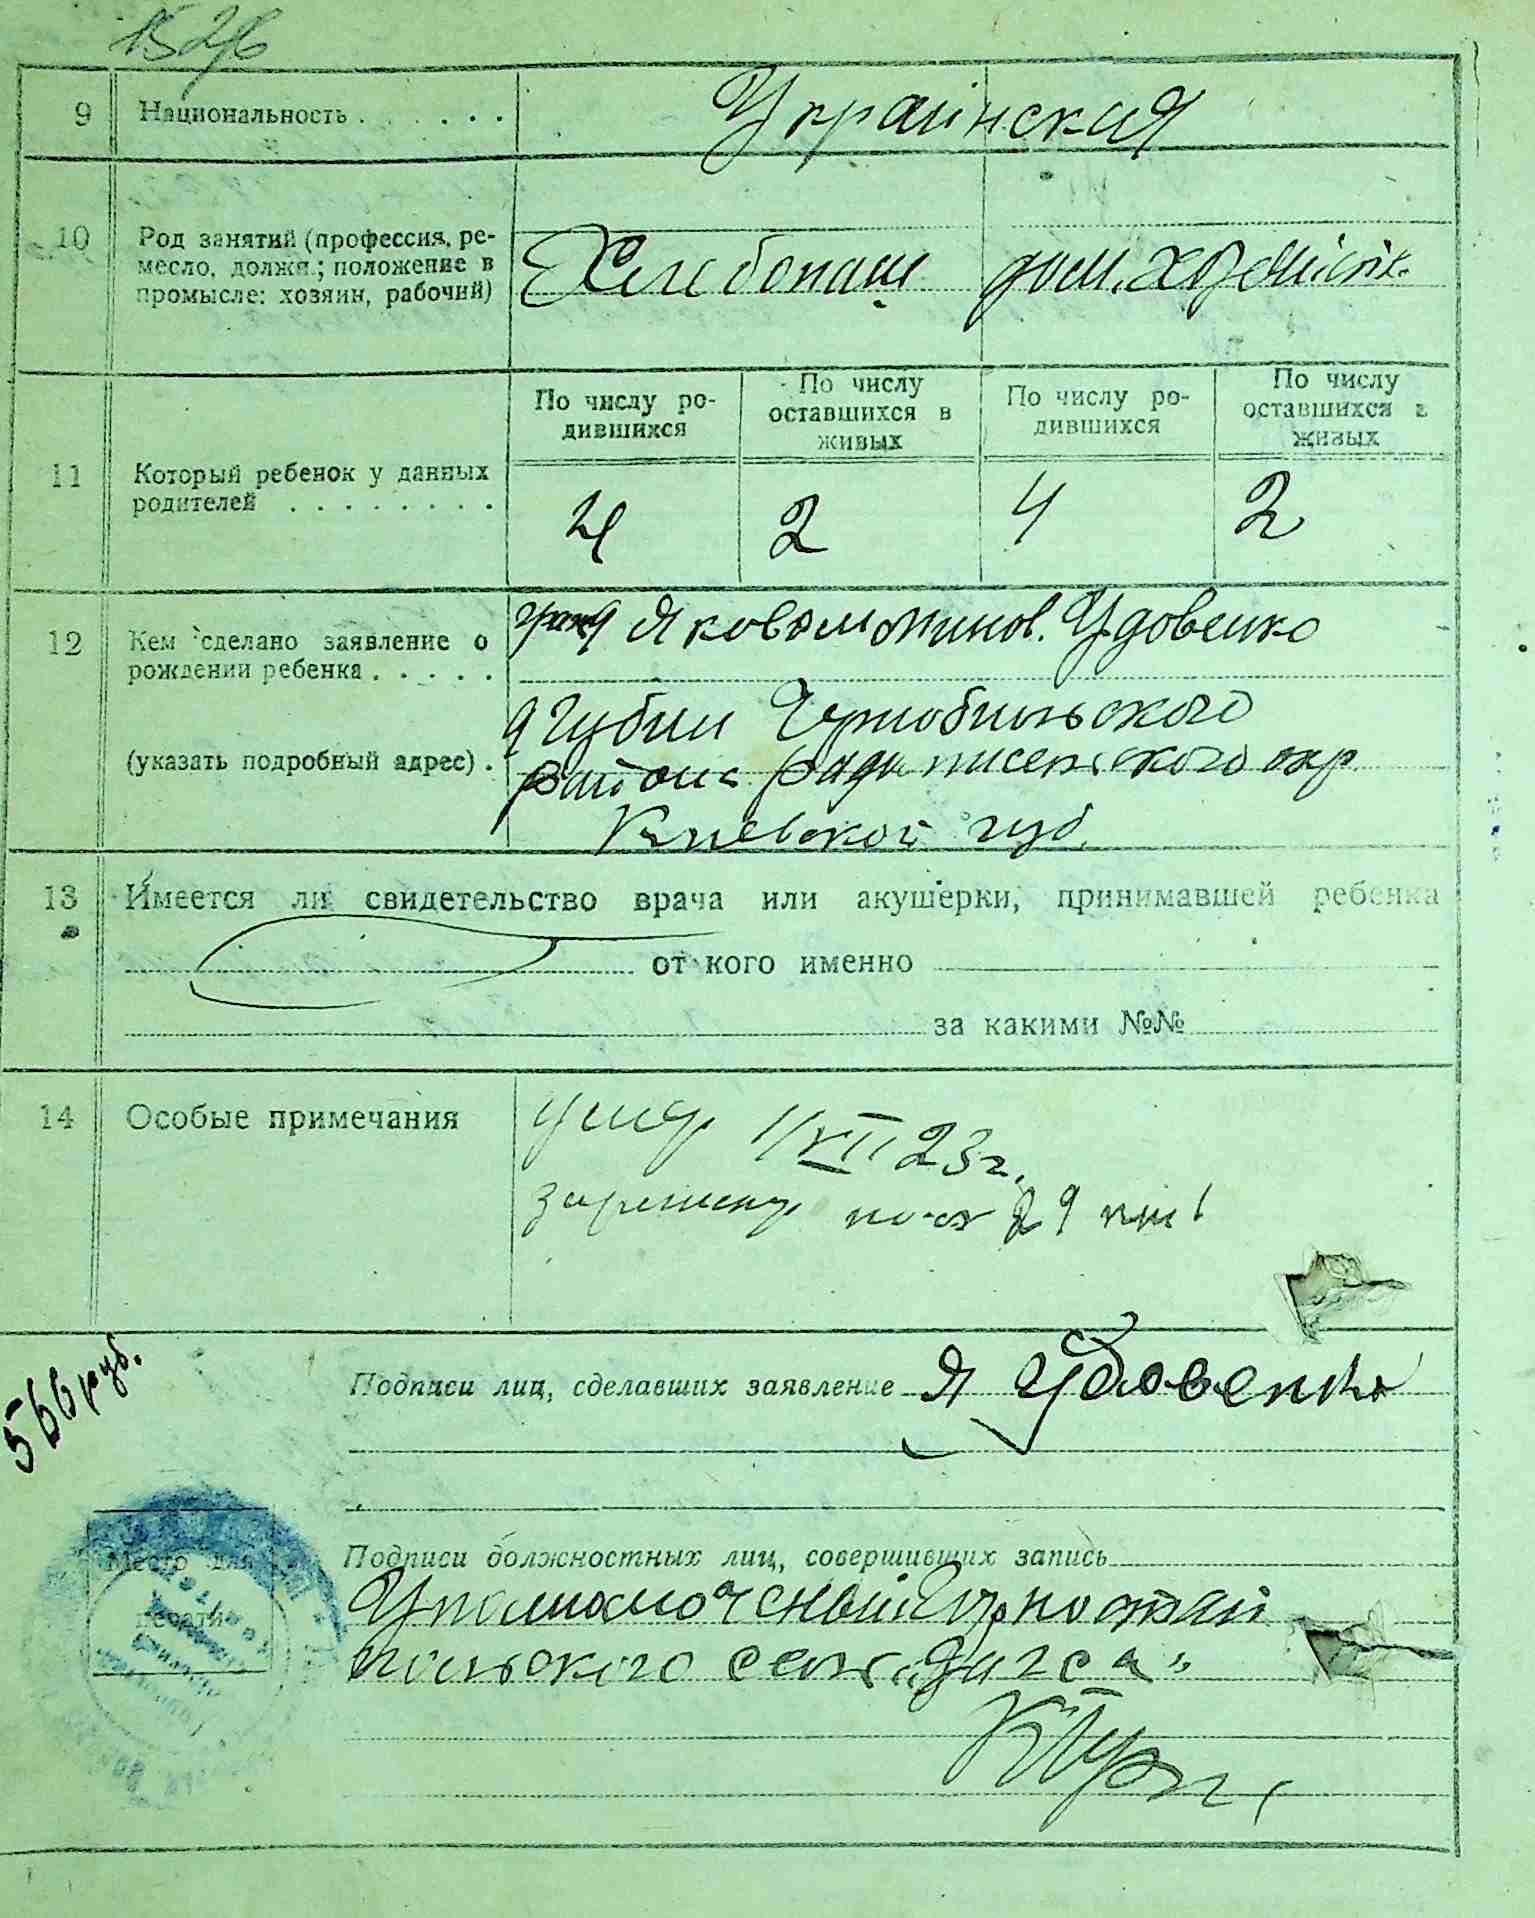 1526
9 Национальность . . . . . . Украінская
10 Род занятий (профессия, ре-
месло, должн.; положение в
промысле: хозяин, рабочий)
Хлебопаш дом. хозяйік.
По числу ро-
дившихся
По числу
оставшихся в
живых
По числу ро-
дившихся
По числу
оставшихся в
живых
11 Который ребенок у данных
родителей . . . . . . . .
4 2 4 2
12 Кем сделано заявление о
рождении ребенка . . . . .
(указать подробный адрес) .
Яковом Удовенко
Губин
района
Киевской губ.
13 Имеется ли свидетельство врача или акушерки, принимавшей ребенка
от кого именно
за какими №№
14 Особые примечания
1/VII 23 г.
566 руб.
Подписи лиц, сделавших заявление Я Удовенко
Место для
печати
Подписи должностных лиц, совершивших запись
Уполномоченный
польского сель „Загса"